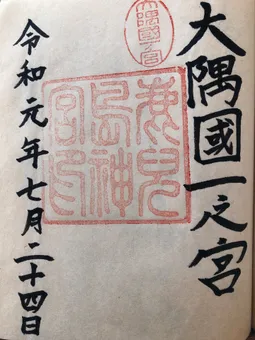 大隅國一之宮
大隅國一宮
鹿兒
島神
宮印
令和元年七月二十四日